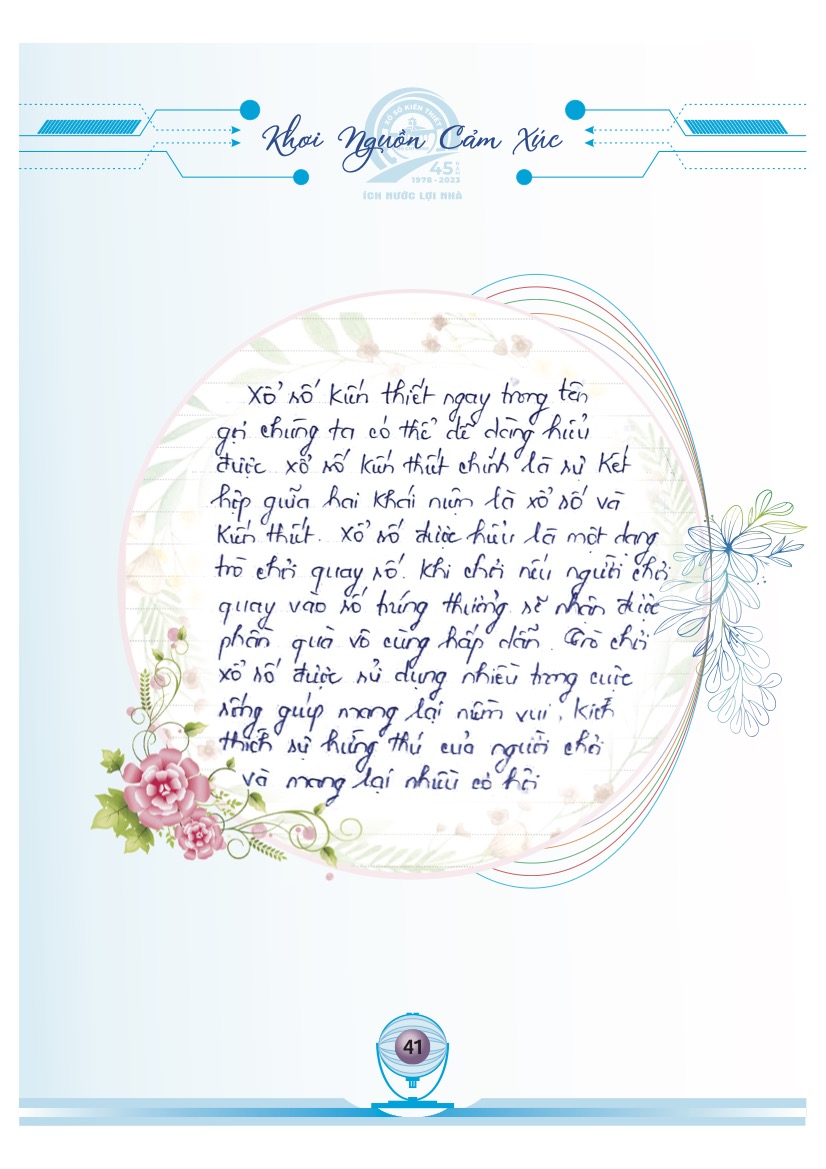 Khơi Nguồn Cảm Xúc
XỔ SỐ KIẾN THIẾT
45 NĂM
1978 - 2023
ÍCH NƯỚC LỢI NHÀ
Xổ số kiến thiết ngay trong tên
gọi chúng ta có thể dễ dàng hiểu
được xổ số kiến thiết chính là sự kết
hợp giữa hai khái niệm là xổ số và
kiến thiết. Xổ số được hiểu là một dạng
trò chơi quay số. Khi chơi nếu người chơi
quay vào số trúng thưởng sẽ nhận được
phần quà vô cùng hấp dẫn. Trò chơi
xổ số được sử dụng nhiều trong cuộc
sống giúp mang lại niềm vui, kích
thích sự hứng thú của người chơi
và mang lại nhiều cơ hội
41